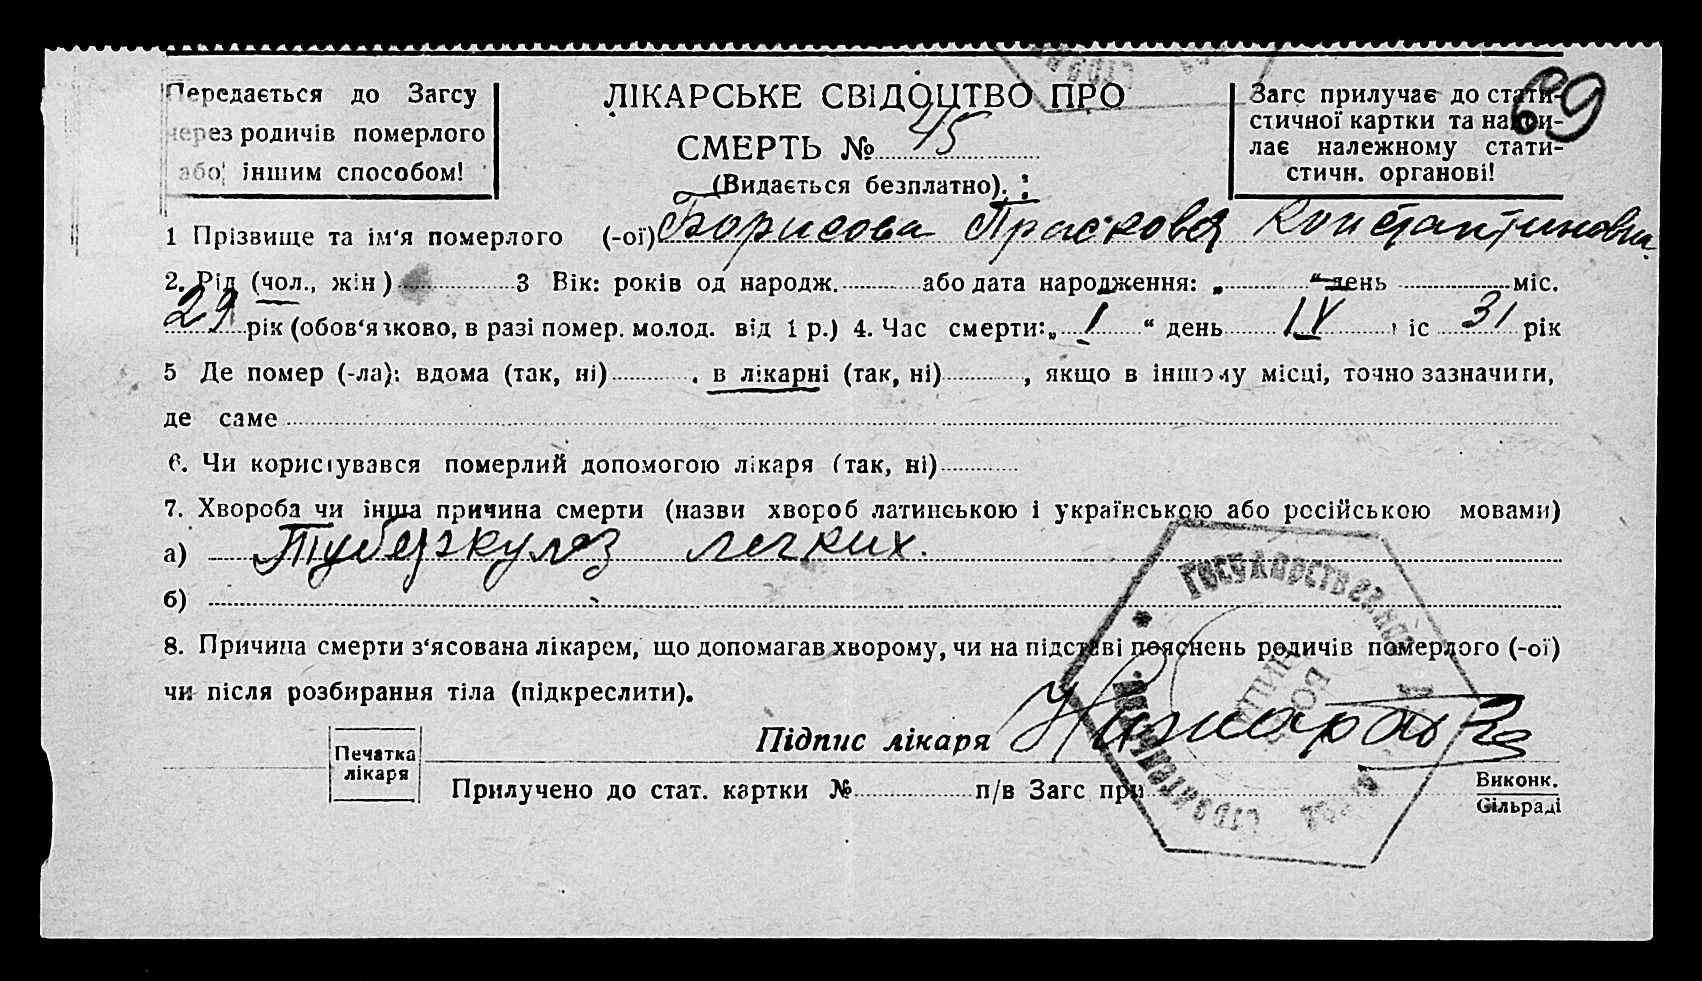 69
Передається до Загсу
через родичів померлого
або іншим способом!
ЛІКАРСЬКЕ СВІДОЦТВО ПРО
СМЕРТЬ № 45
(Видається безплатно).
Загс прилучає до стати-
стичної картки та надси-
лає належному стати-
стичн. органові!
1 Прізвище та ім'я померлого (-ої) Борисова Прасковья Константиновна
2. Рід (чол., жін) 3 Вік: років од народж. або дата народження: „ “ день міс.
29 рік (обов'язково, в разі помер. молод. від 1 р.) 4. Час смерти: „ 1 “ день IX міс 31 рік
5 Де помер (-ла): вдома (так, ні) , в лікарні (так, ні) , якщо в іншому місці, точно зазначити,
де саме
6. Чи користувався померлий допомогою лікаря (так, ні)
7. Хвороба чи інша причина смерти (назви хвороб латинською і українською або російською мовами)
а) Туберкулез легких.
б)
8. Причина смерти з'ясована лікарем, що допомагав хворому, чи на підставі пояснень родичів померлого (-ої)
чи після розбирання тіла (підкреслити).
Печатка
лікаря
Підпис лікаря
Прилучено до стат. картки № п/в Загс при
Виконк.
Сільраді